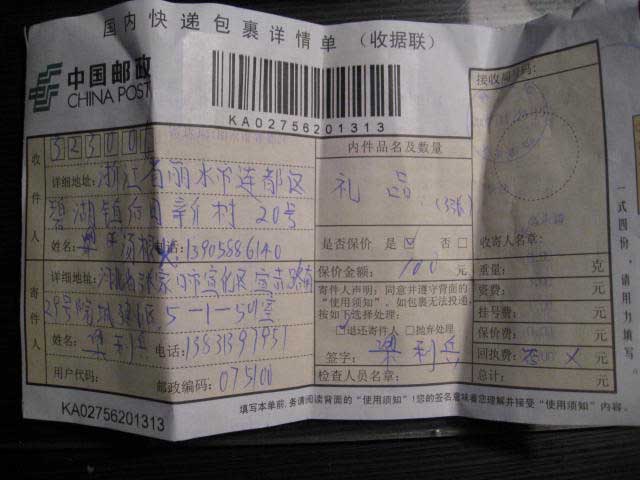 国内快递包裹详情单 (收据联)
中国邮政
CHINA POST
KA02756201313
接收局号码:
323001
收件人
详细地址:浙江省丽水市莲都区
碧湖镇白口新村 20号
姓名: 电话:13905886140
寄件人
详细地址:河北省张家口市宣化区宣赤路南
29号院 5-1-501室
姓名:梁利兵 电话:
用户代码: 邮政编码:075100
内件品名及数量
礼品
是否保价 是☑ 否□
保价金额:100元
寄件人声明:同意并遵守背面的
"使用须知",如包裹无法投递,
按如下选择处理:
□退还寄件人 □抛弃处理
签字:梁利兵
检查人员名章:
收寄人名章:
重量: 克
资费: 元
挂号费: 元
保价费: 元
回执费: 元
总计: 元
一式四份,请用力填写
KA02756201313
填写本单前,务请阅读背面的"使用须知"!您的签名意味着您理解并接受"使用须知"内容.